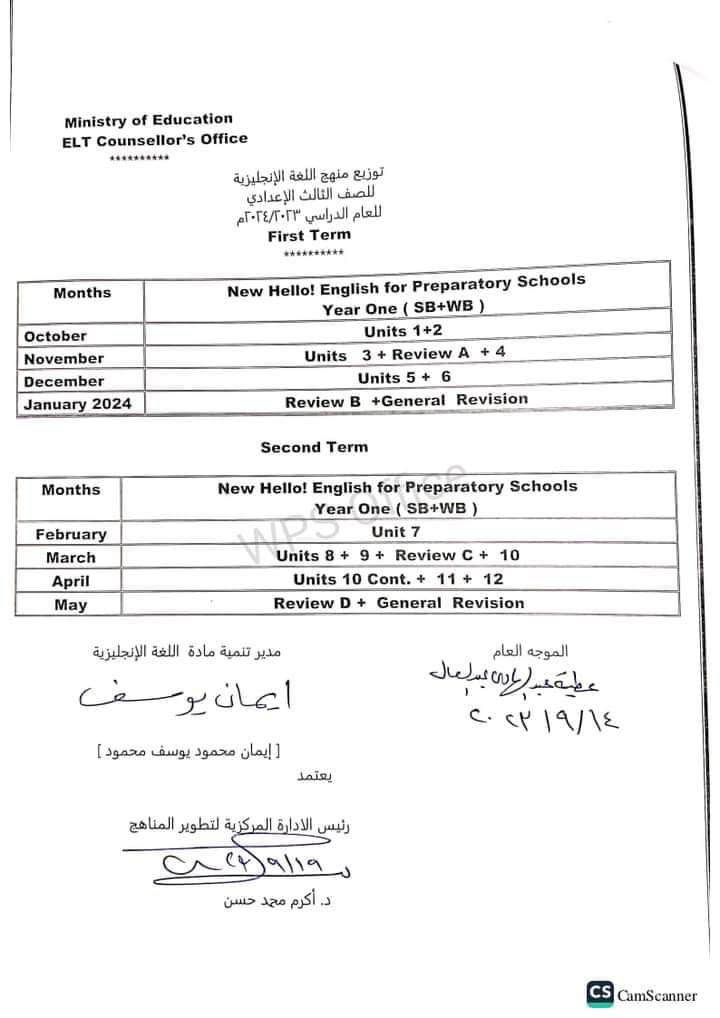 Ministry of Education
ELT Counsellor's Office
**********
توزيع منهج اللغة الإنجليزية
للصف الثالث الإعدادي
للعام الدراسي ٢٠٢٤/٢٠٢٣م
First Term
**********
Months New Hello! English for Preparatory Schools
Year One ( SB+WB )
October Units 1+2
November Units 3 + Review A + 4
December Units 5 + 6
January 2024 Review B +General Revision
Second Term
Months New Hello! English for Preparatory Schools
Year One ( SB+WB )
February Unit 7
March Units 8 + 9 + Review C + 10
April Units 10 Cont. + 11 + 12
May Review D + General Revision
WPS Office
الموجه العام
عطية عبد الهادى عبدالعال
٢٠٢٣/٩/١٤
مدير تنمية مادة اللغة الإنجليزية
ايمان يوسف
[ إيمان محمود يوسف محمود ]
يعتمد
رئيس الادارة المركزية لتطوير المناهج
د. أكرم محمد حسن
CS CamScanner